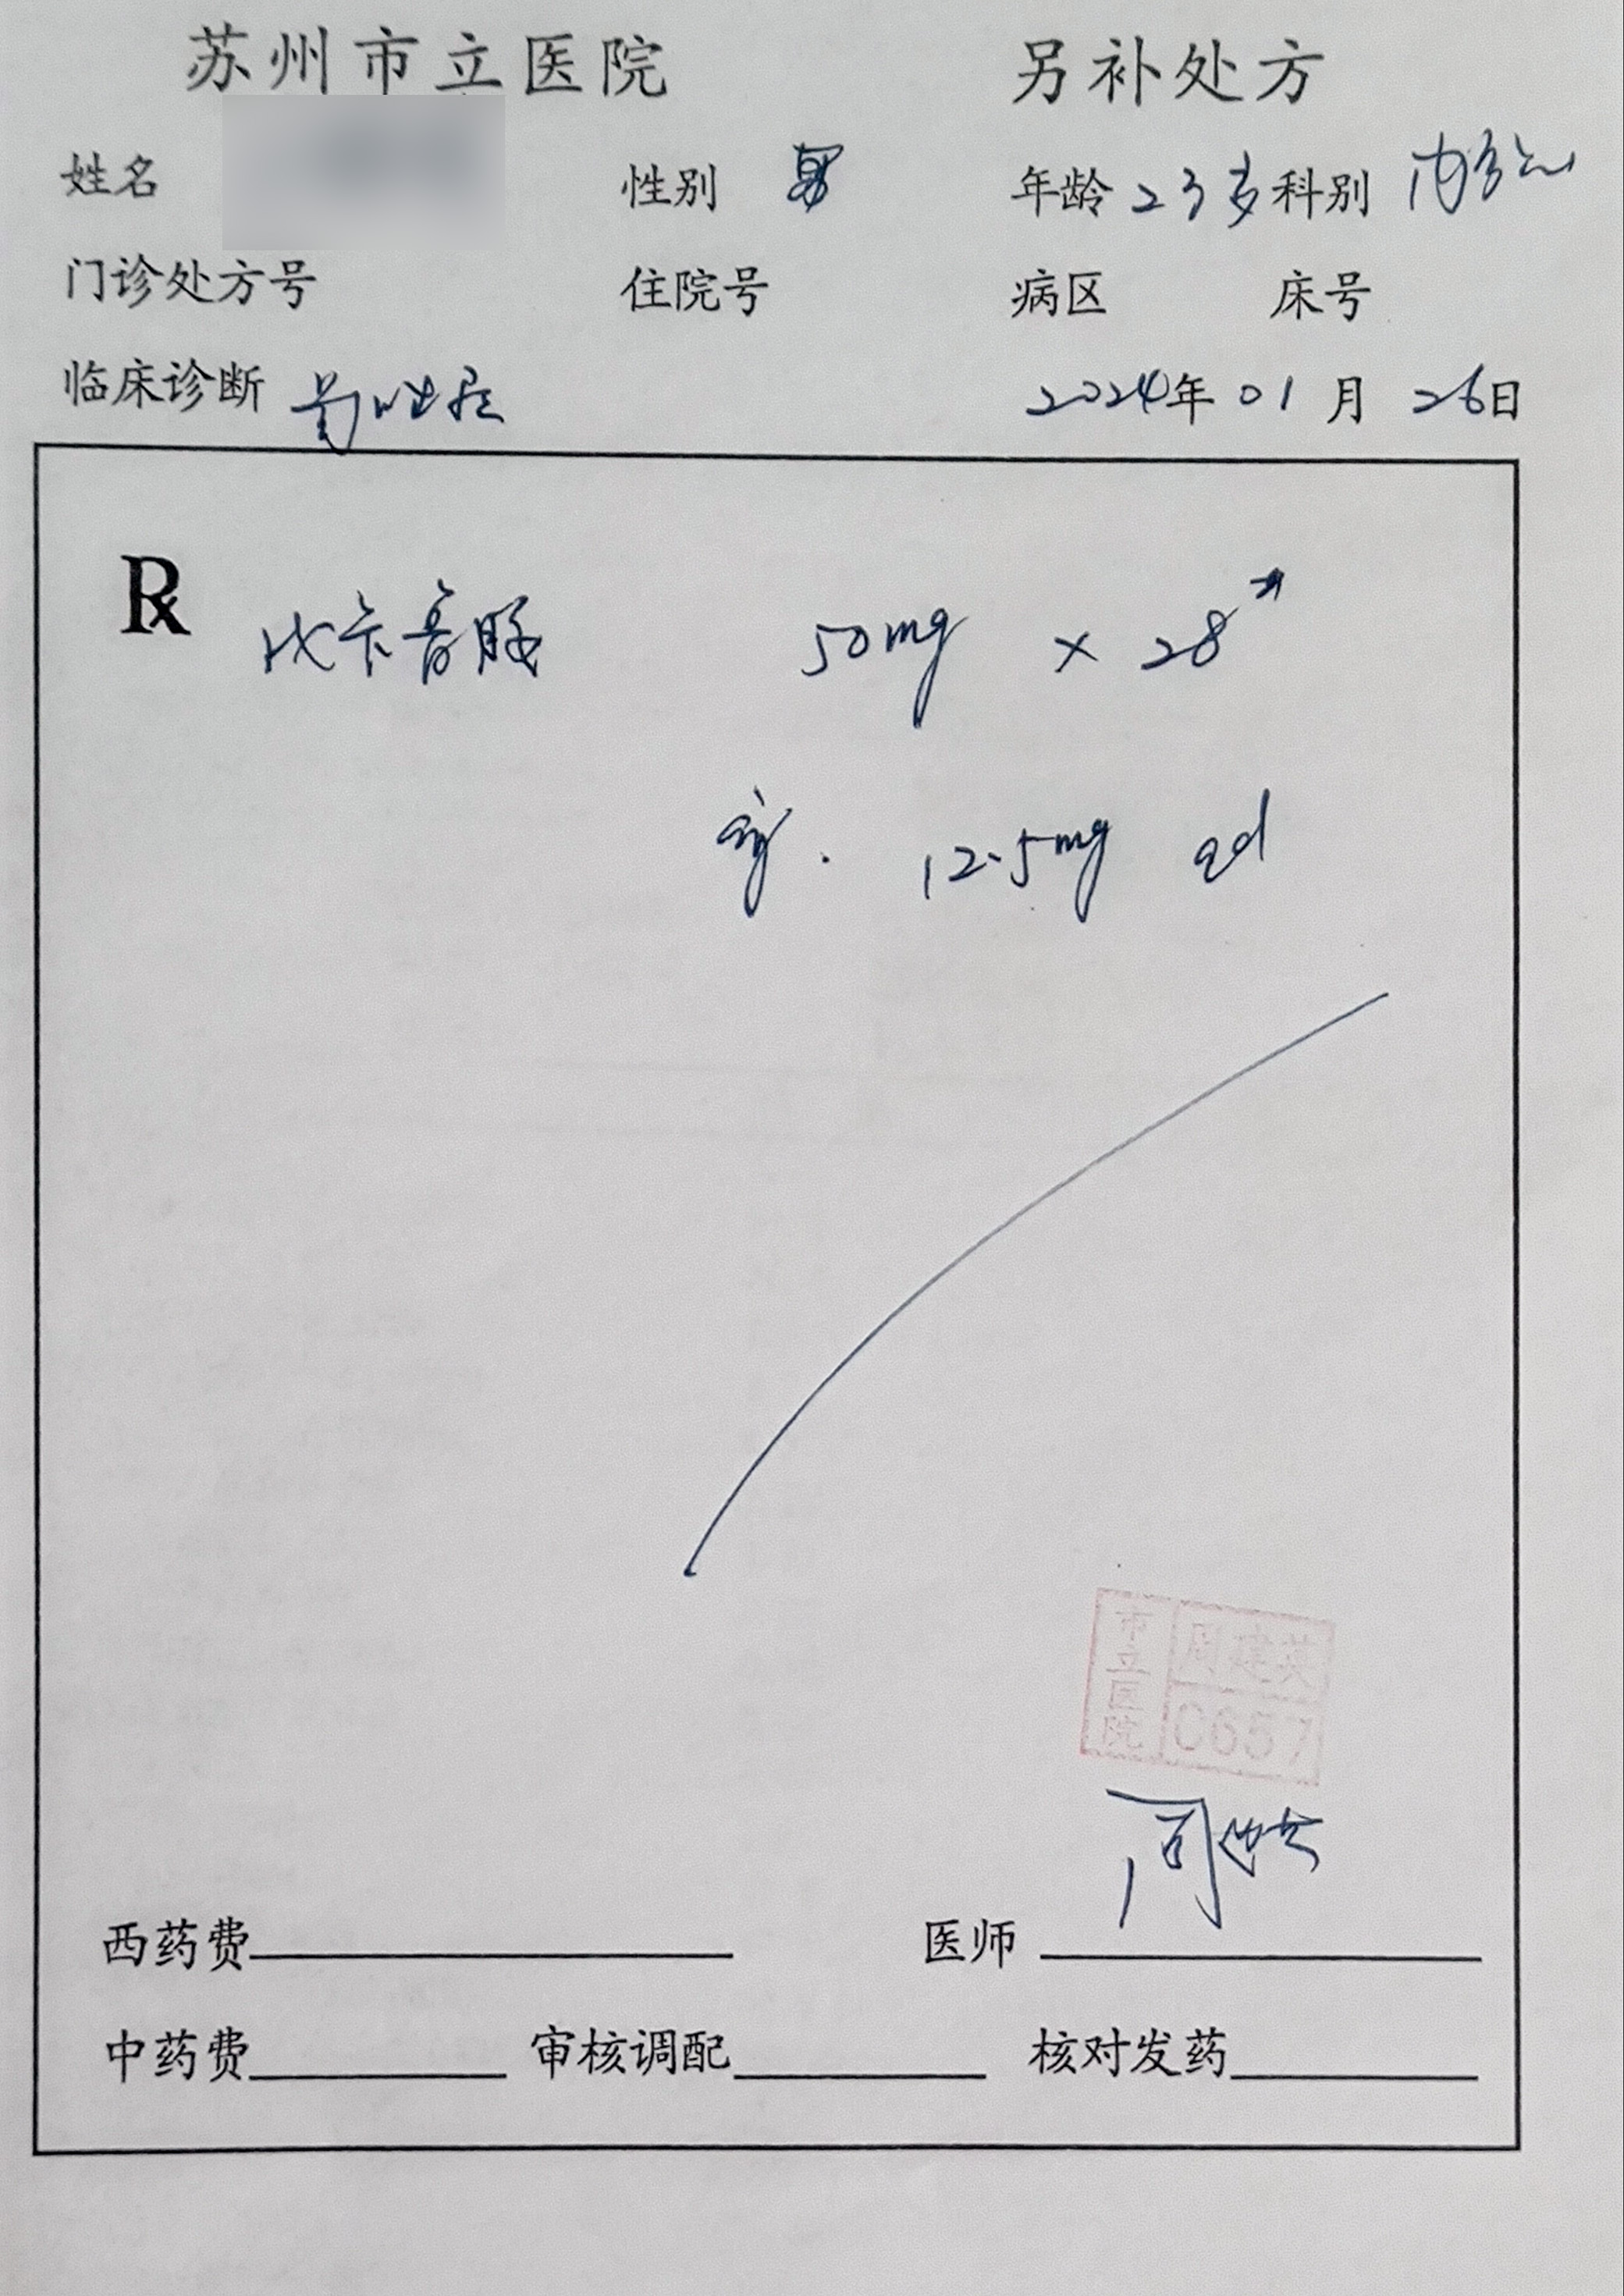 苏州市立医院 另补处方
姓名 性别 男 年龄 23岁 科别 内分泌
门诊处方号 住院号 病区 床号
临床诊断 2024年 01月 26日
Rx 比卡鲁胺 50mg × 28
12.5mg qd
市立医院 周建英 C657
西药费 医师
中药费 审核调配 核对发药